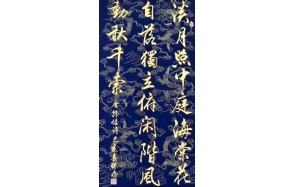 淡月照中庭海棠花
自落獨立俯閑階風
動秋千索